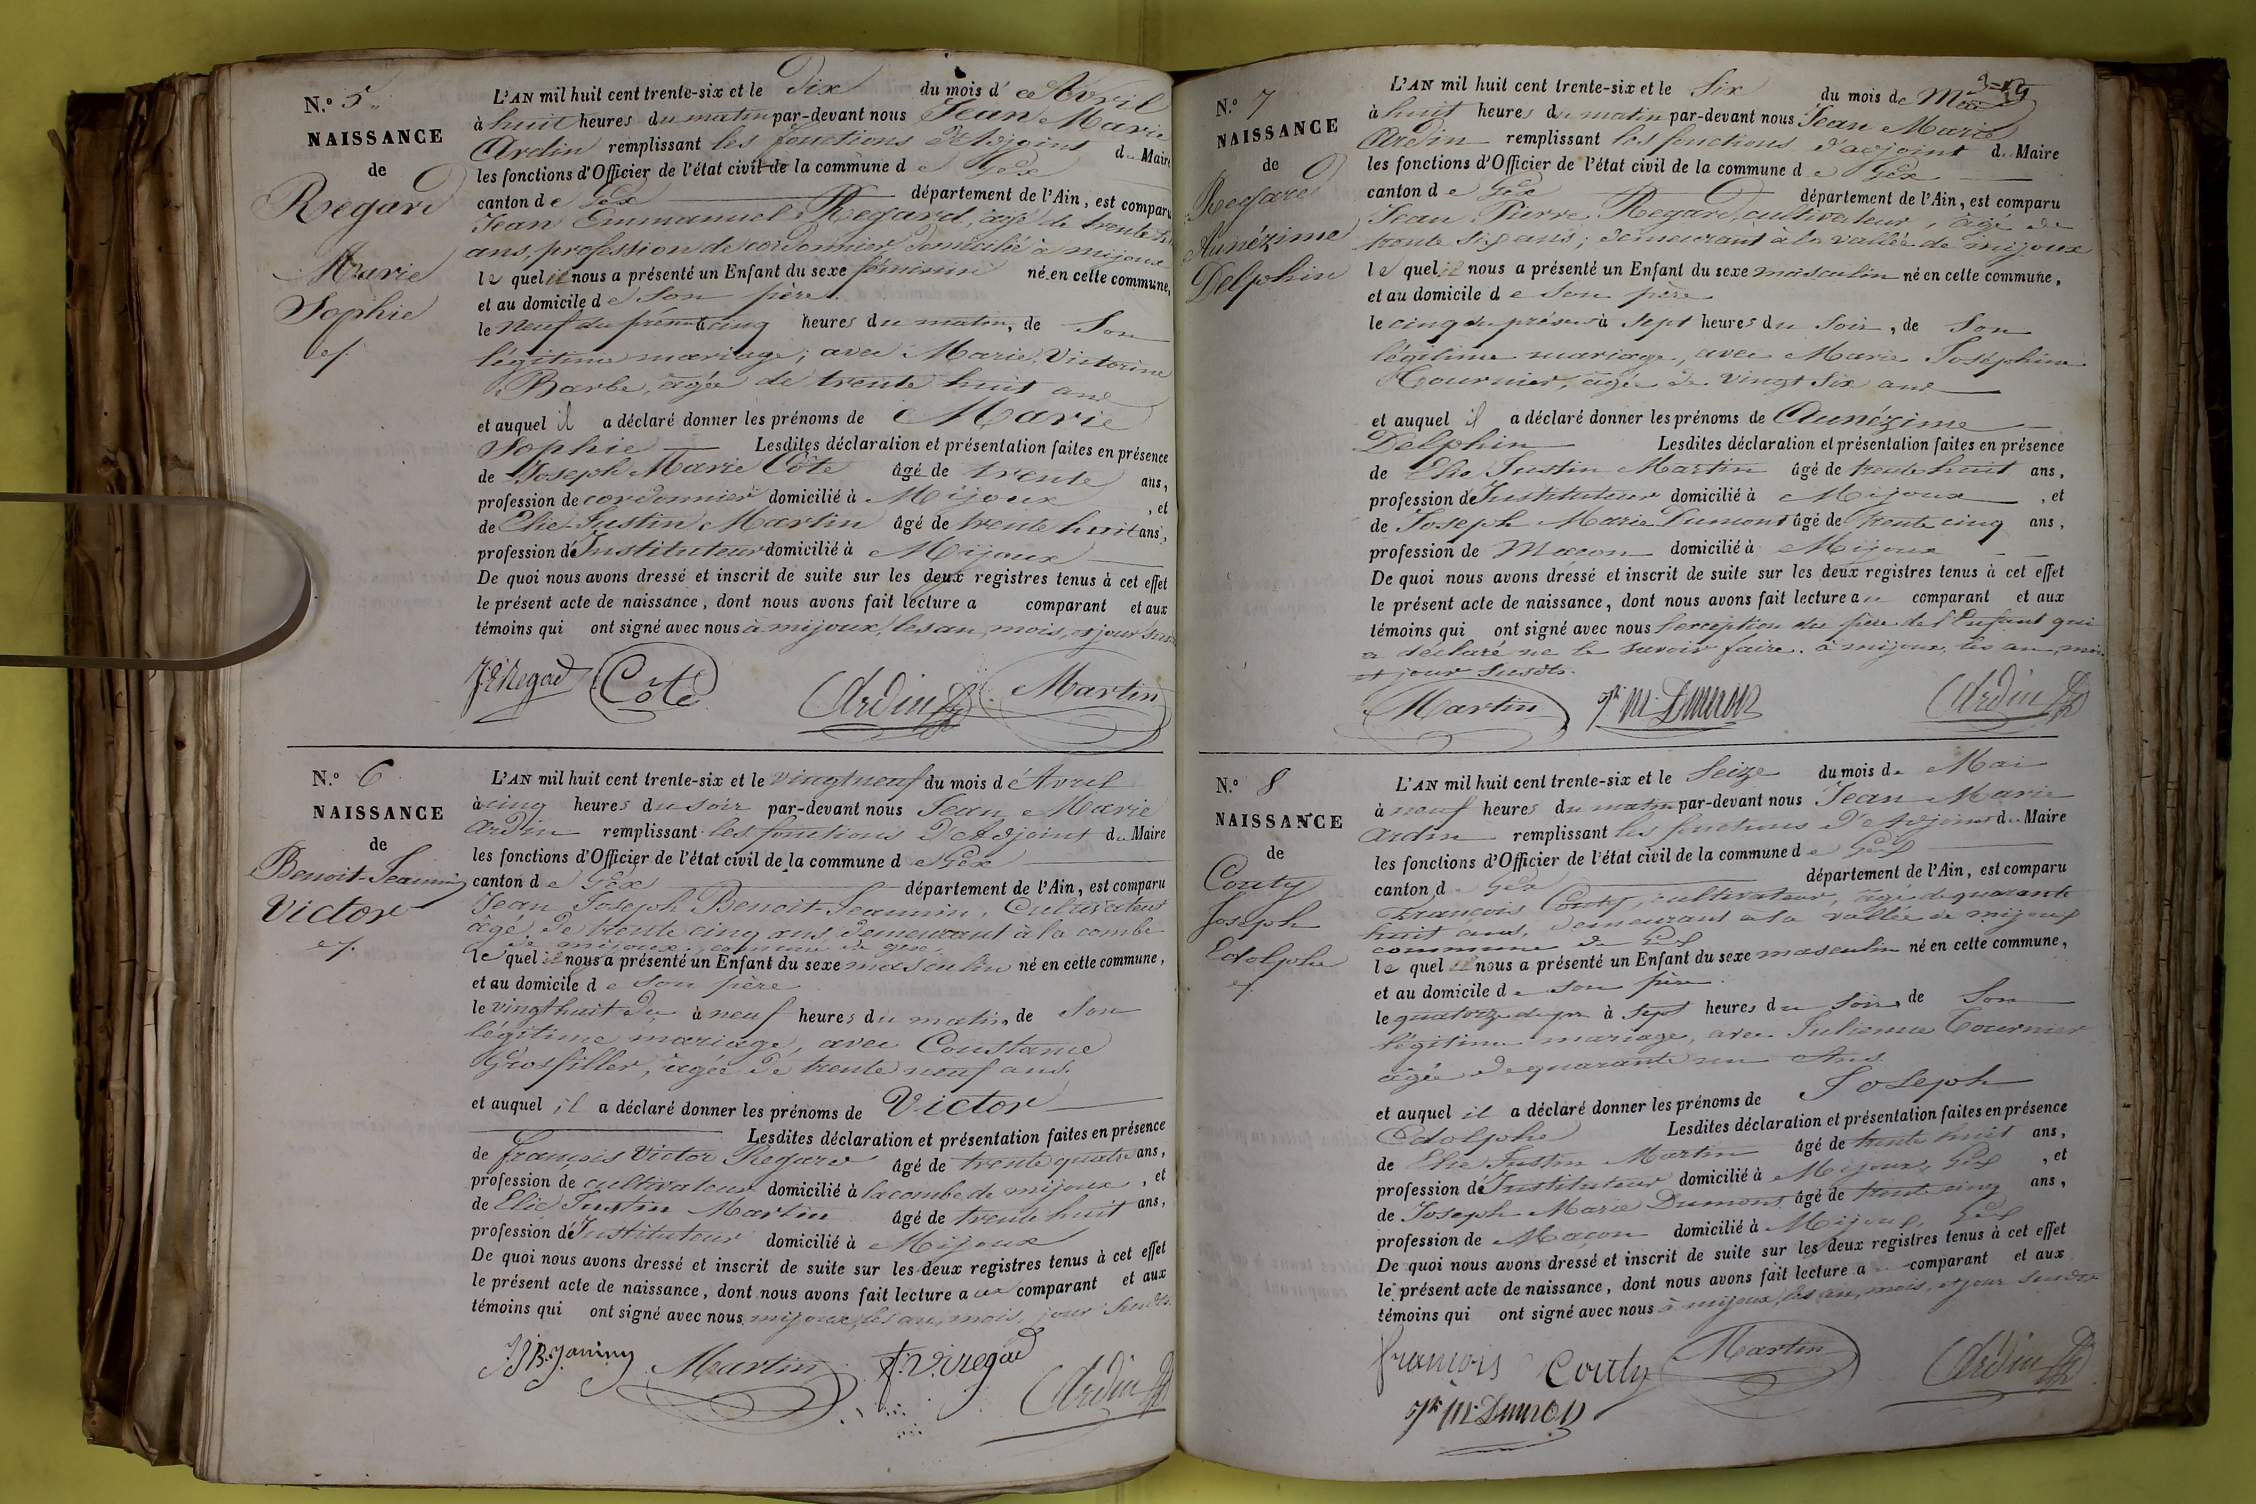 N.° 5
NAISSANCE
de
Regard
Marie
Sophie
L'AN mil huit cent trente-six et le Dix du mois d'Avril
à huit heures du matin par-devant nous Jean Marie
Ardin remplissant les fonctions d'Adjoint du Maire
les fonctions d'Officier de l'état civil de la commune de Gex
canton de Gex département de l'Ain, est comparu
Jean Emmanuel Regard, âgé de trente
ans, profession de cordonnier domicilié à mijoux
lequel il nous a présenté un Enfant du sexe féminin né en cette commune,
et au domicile de son père.
le neuf du présent à cinq heures du matin, de Son
légitime mariage, avec Marie Victorine
Barbe, âgée de trente huit ans
et auquel il a déclaré donner les prénoms de Marie
Sophie Lesdites déclaration et présentation faites en présence
de Joseph Marie Côte âgé de trente ans,
profession de cordonnier domicilié à Mijoux, et
de Elie Justin Martin âgé de trente huit ans,
profession d'Instituteur domicilié à Mijoux
De quoi nous avons dressé et inscrit de suite sur les deux registres tenus à cet effet
le présent acte de naissance, dont nous avons fait lecture a comparant et aux
témoins qui ont signé avec nous à mijoux, les an, mois, et jour susd
J E Regad Côte Ardin Martin
N.° 6
NAISSANCE
de
Benoit-Jeannin
Victor
L'AN mil huit cent trente-six et le vingt neuf du mois d'Avril
à cinq heures du soir par-devant nous Jean Marie
Ardin remplissant les fonctions d'Adjoint du Maire
les fonctions d'Officier de l'état civil de la commune de Gex
canton de Gex département de l'Ain, est comparu
Jean Joseph Benoit-Jeannin, Cultivateur
âgé de trente cinq ans, demeurant à la combe
de mijoux, commune de gex
lequel il nous a présenté un Enfant du sexe masculin né en cette commune,
et au domicile de son père
le vingt huit du à neuf heures du matin, de Son
légitime mariage, avec Constance
Grosfiller, âgée de trente neuf ans,
et auquel il a déclaré donner les prénoms de Victor
Lesdites déclaration et présentation faites en présence
de françois Victor Regard âgé de trente quatre ans,
profession de cultivateur domicilié à la combe de mijoux, et
de Elie Justin Martin âgé de trente huit ans,
profession d'Instituteur domicilié à Mijoux
De quoi nous avons dressé et inscrit de suite sur les deux registres tenus à cet effet
le présent acte de naissance, dont nous avons fait lecture au comparant et aux
témoins qui ont signé avec nous mijoux, les an, mois, jour susdits
J J B Janiny Martin f. v. regad Ardin
N.° 7
NAISSANCE
de
Regard
Aunézime
Delphin
L'AN mil huit cent trente-six et le Six du mois de Mai
à huit heures du matin par-devant nous Jean Marie
Ardin remplissant les fonctions d'adjoint du Maire
les fonctions d'Officier de l'état civil de la commune de Gex
canton de Gex département de l'Ain, est comparu
Jean Pierre Regard, cultivateur, âgé de
trente six ans, demeurant à la vallée de mijoux
lequel il nous a présenté un Enfant du sexe masculin né en cette commune,
et au domicile de son père
le cinq du présent à sept heures du soir, de Son
légitime mariage, avec Marie Joséphine
Tournier, âgée de vingt six ans
et auquel il a déclaré donner les prénoms de Aunézime
Delphin Lesdites déclaration et présentation faites en présence
de Elie Justin Martin âgé de trente huit ans,
profession d'Instituteur domicilié à Mijoux, et
de Joseph Marie Dumont âgé de trente cinq ans,
profession de Macon domicilié à Mijoux
De quoi nous avons dressé et inscrit de suite sur les deux registres tenus à cet effet
le présent acte de naissance, dont nous avons fait lecture au comparant et aux
témoins qui ont signé avec nous l'exception du père de l'Enfant qui
a déclaré ne le savoir faire. à mijoux, les an, mois
et jour susdits.
Martin Jh M. Dumon Ardin
N.° 8
NAISSANCE
de
Couty
Joseph
Edolphe
L'AN mil huit cent trente-six et le Seize du mois de Mai
à neuf heures du matin par-devant nous Jean Marie
Ardin remplissant les fonctions d'Adjoint du Maire
les fonctions d'Officier de l'état civil de la commune de Gex
canton de Gex département de l'Ain, est comparu
François Couty, cultivateur, âgé de quarante
huit ans, demeurant à la vallée de mijoux
commune de Gex
lequel il nous a présenté un Enfant du sexe masculin né en cette commune,
et au domicile de son père.
le quatorze du pr à sept heures du soir, de Son
légitime mariage, avec Julienne Tournier
âgée de quarante un Ans
et auquel il a déclaré donner les prénoms de Joseph
Edolphe Lesdites déclaration et présentation faites en présence
de Elie Justin Martin âgé de trente huit ans,
profession d'Instituteur domicilié à Mijoux, Gex, et
de Joseph Marie Dumont âgé de trente cinq ans,
profession de Maçon domicilié à Mijoux, Gex
De quoi nous avons dressé et inscrit de suite sur les deux registres tenus à cet effet
le présent acte de naissance, dont nous avons fait lecture a comparant et aux
témoins qui ont signé avec nous à mijoux, les an, mois, et jour susdits
françois Couty Martin Ardin
Jh M. Dumon